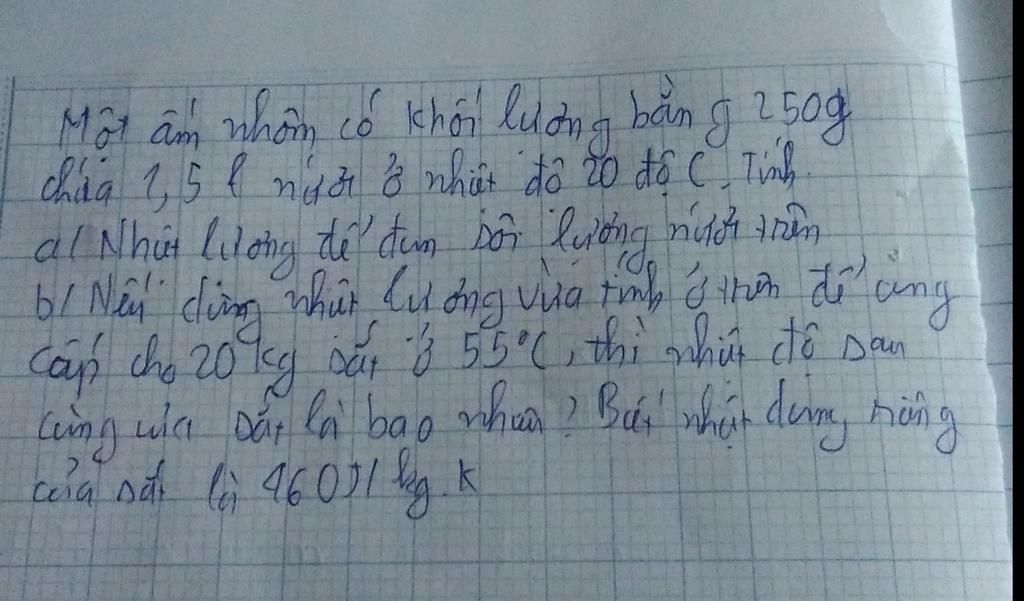 Một ấm nhôm có khối lượng bằng 250g
chứa 1,5 l nước ở nhiệt độ 20 độ C. Tính.
a/ Nhiệt lượng để đun sôi lượng nước trên
b/ Nếu dùng nhiệt lượng vừa tính ở trên để cung
cấp cho 20 kg sắt ở 55°C, thì nhiệt độ sau
cùng của sắt là bao nhiêu? Biết nhiệt dung riêng
của sắt là 460J/kg.K